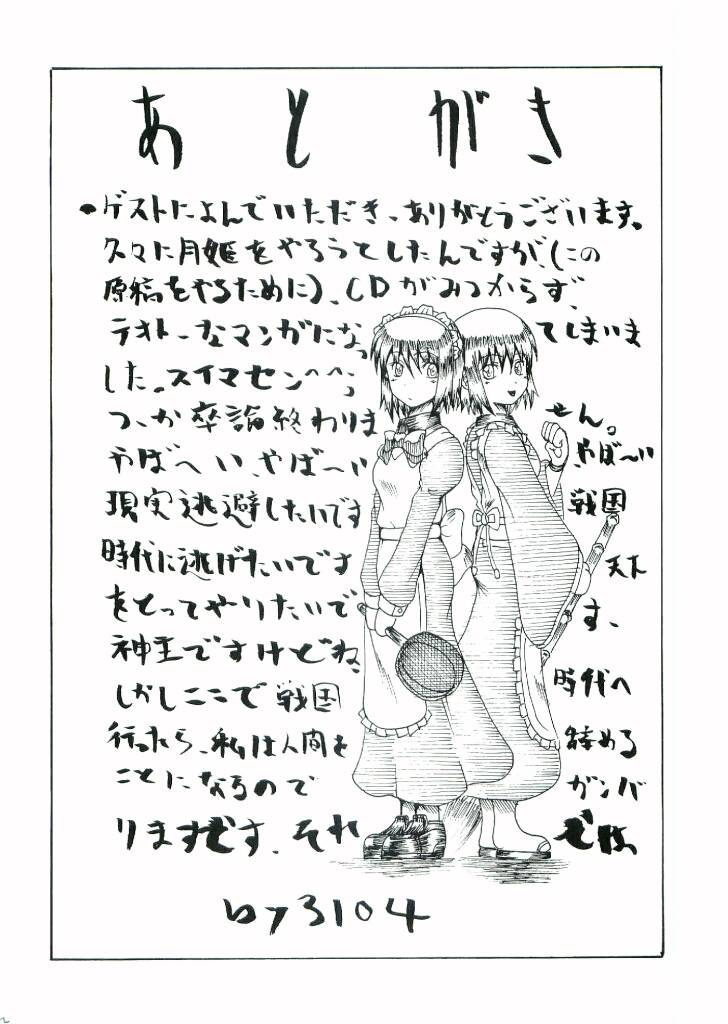 あとがき
・ゲストによんでいただき、ありがとうございます。
久々に月姫をやろうてしたんですが、(この
原稿をやるために)、CDがみつからず、
テキトーなマンガになってしまいま
した。スイマセン^^;
つーか卒論終わりません。
やばへい、やば～いやば～い
現実逃避したいです戦国
時代に逃げたいです天下
をとってやりたいです、
神主ですけどね、
しかしここで戦国時代へ
行ったら、私は人間を辞める
ことになるのでガンバ
りますです、それでは
by3104